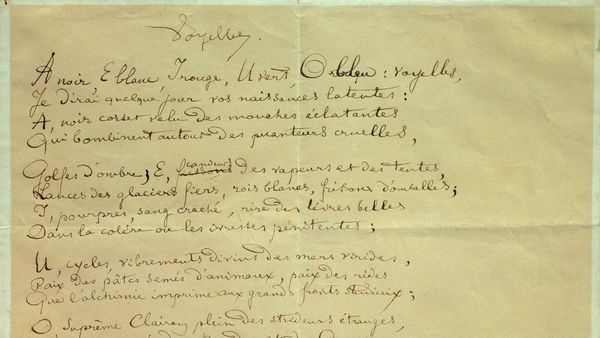 Voyelles.
A noir, E blanc, I rouge, U vert, O bleu : voyelles,
Je dirai quelque jour vos naissances latentes :
A, noir corset velu des mouches éclatantes
Qui bombinent autour des puanteurs cruelles,
Golfes d'ombre; E, candeurs des vapeurs et des tentes,
Lances des glaciers fiers, rois blancs, frissons d'ombelles;
I, pourpres, sang craché, rire des lèvres belles
Dans la colère ou les ivresses pénitentes;
U, cycles, vibrements divins des mers virides,
Paix des pâtis semés d'animaux, paix des rides
Que l'alchimie imprime aux grands fronts studieux;
O, Suprême Clairon plein des strideurs étranges,